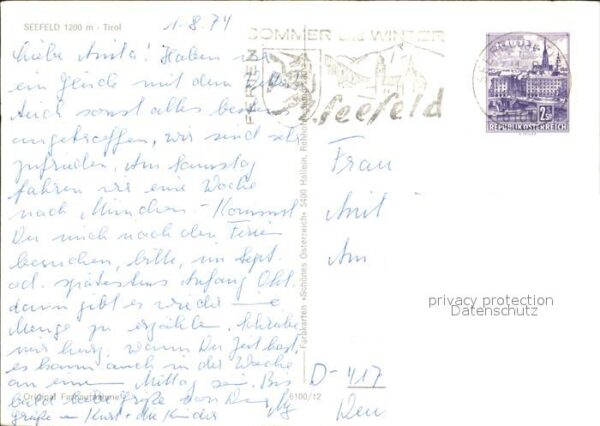 SEEFELD 1200 m - Tirol
1.8.74
Liebe Anita! Haben wir
ein Glück mit dem
Auch sonst alles bestens
angetroffen, wir sind sehr
zufrieden. Am Samstag
fahren wir eine Woche
nach München. - Kommst
Du mich nach den Ferien
besuchen, bitte, im Sept.
od. spätestens Anfang Okt.
dann gibt es wieder eine
Menge zu erzählen. Schreibe
mir kurz, wann Du Zeit hast,
es kann auch in der Woche
an einem Mittag sein. Bis
bald liebe Grüße von Deiner
Grüße - Kurt + die Kinder
Original Farbaufnahme
Farbkarten «Schönes Österreich» 5400 Hallein,
6100/12
FERIEN
SOMMER WINTER
Seefeld
2.50
REPUBLIK ÖSTERREICH
Frau
Anit
Am
D-417
privacy protection
Datenschutz